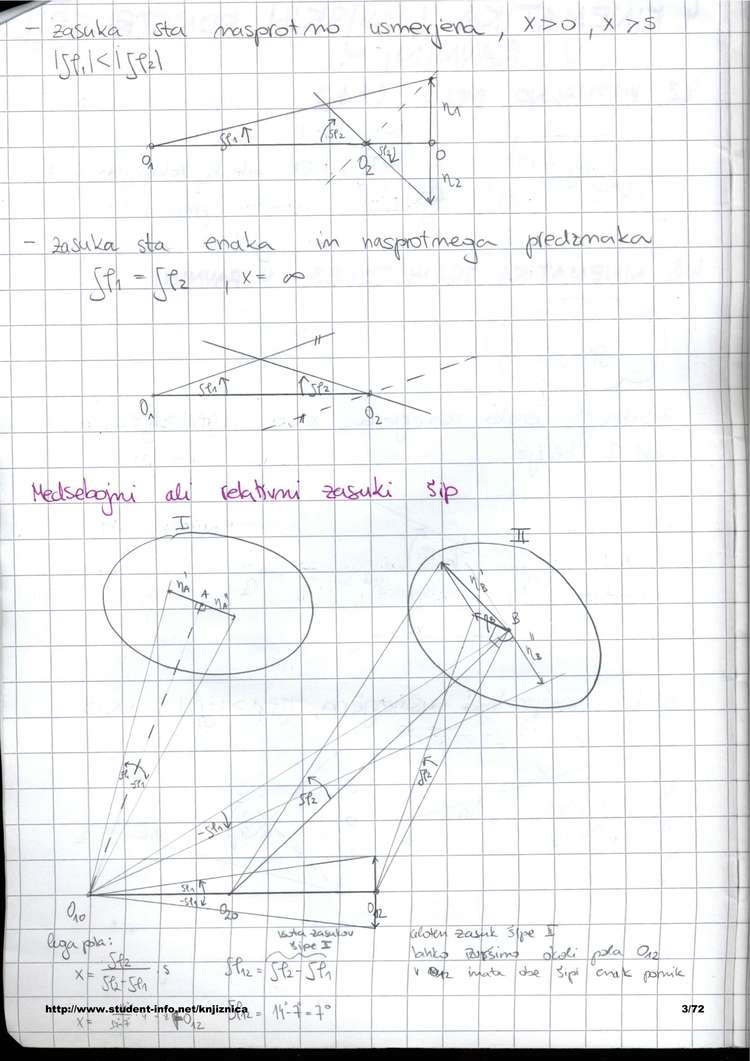 - zasuka sta nasprotno usmerjena, x>0, x>s
|δφ₁|<|δφ₂|
δφ₁ δφ₂ δφ₂ η₁
O₁ O₂ O η₂
- zasuka sta enaka in nasprotnega predznaka
δφ₁ = δφ₂, x = ∞
δφ₁ δφ₂
O₁ O₂
Medsebojni ali relativni zasuki šip
I II
η'A A η''A η'B ηB B η''B
δφ₁ -δφ₁ -δφ₁ δφ₂ δφ₂
δφ₁
-δφ₁
O₁₀ O₂₀ O₁₂
lega pola:
x = δφ₂ / δφ₂-δφ₁ · s
vsota zasukov
šipe II
δφ₁₂ = δφ₂ - δφ₁
δφ₁₂ = 14°-7° = 7°
celoten zasuk šipe II
lahko izvršimo okoli pola O₁₂
v O₁₂ imata obe šipi enak pomik
x = O₁₂
http://www.student-info.net/knjiznica
3/72